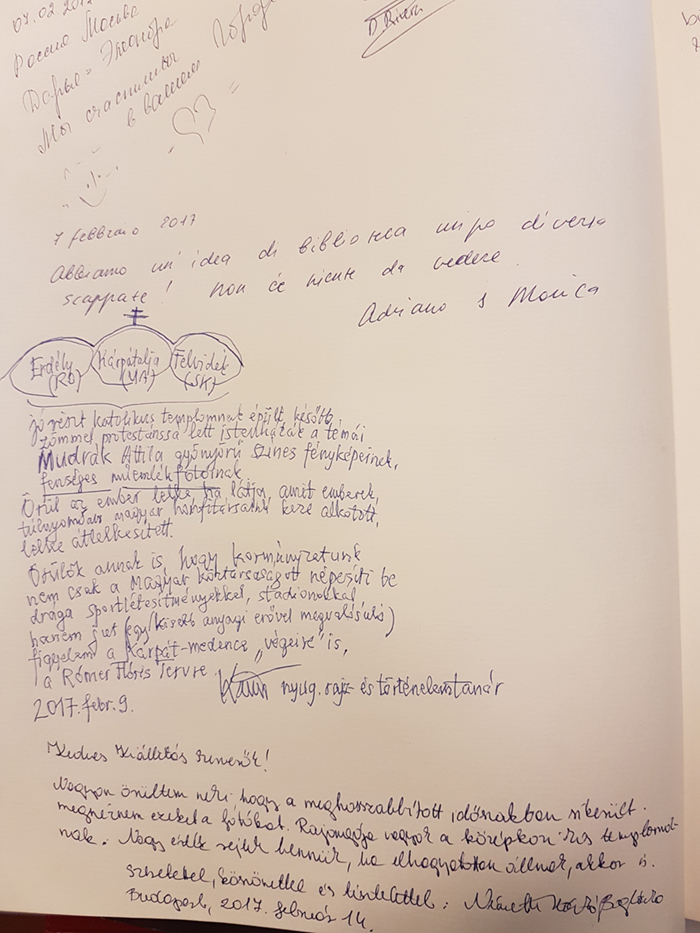 07.02.201
Россия Москва
Дарья - Элеонора
Мы счастливы
в вашем городе
D. Rivera
7 febbraio 2017
Abbiamo un'idea di biblioteca un po diversa
scappate! Non c'è niente da vedere
Adriano e Monica
Erdély Kárpátalja Felvidék
(RO) (UA) (SK)
jórészt katolikus templomnak épült, később
zömmel protestánssá lett istenházak a témái
Mudrák Attila gyönyörű színes fényképeinek,
fenséges műemlékfotóinak
Örül az ember lelke, ha látja, amit emberek,
túlnyomóan magyar honfitársaink keze alkotott,
lelke átlelkesített.
Örülök annak is, hogy kormányzatunk
nem csak a Magyar Köztársaságot népesíti be
drága sportlétesítményekkel, stadionokkal,
hanem jut (egy kisebb anyagi erővel megvalósuló)
figyelem a Kárpát-medence „végeire" is,
a Rómer Flóris Tervre.
nyug. rajz és történelemtanár
2017. febr. 9.
Kedves Kiállítás Szervezők!
Nagyon örültem neki hogy a meghosszabbított időszakban sikerült
megnéznem ezeket a fotókat. Rajongója vagyok a középkori kis templomok-
nak. Nagy érték rejlik bennük, ha elhagyatottan állnak, akkor is.
Szeretettel, köszönettel és tisztelettel: Németh
Budapest, 2017. február 14.